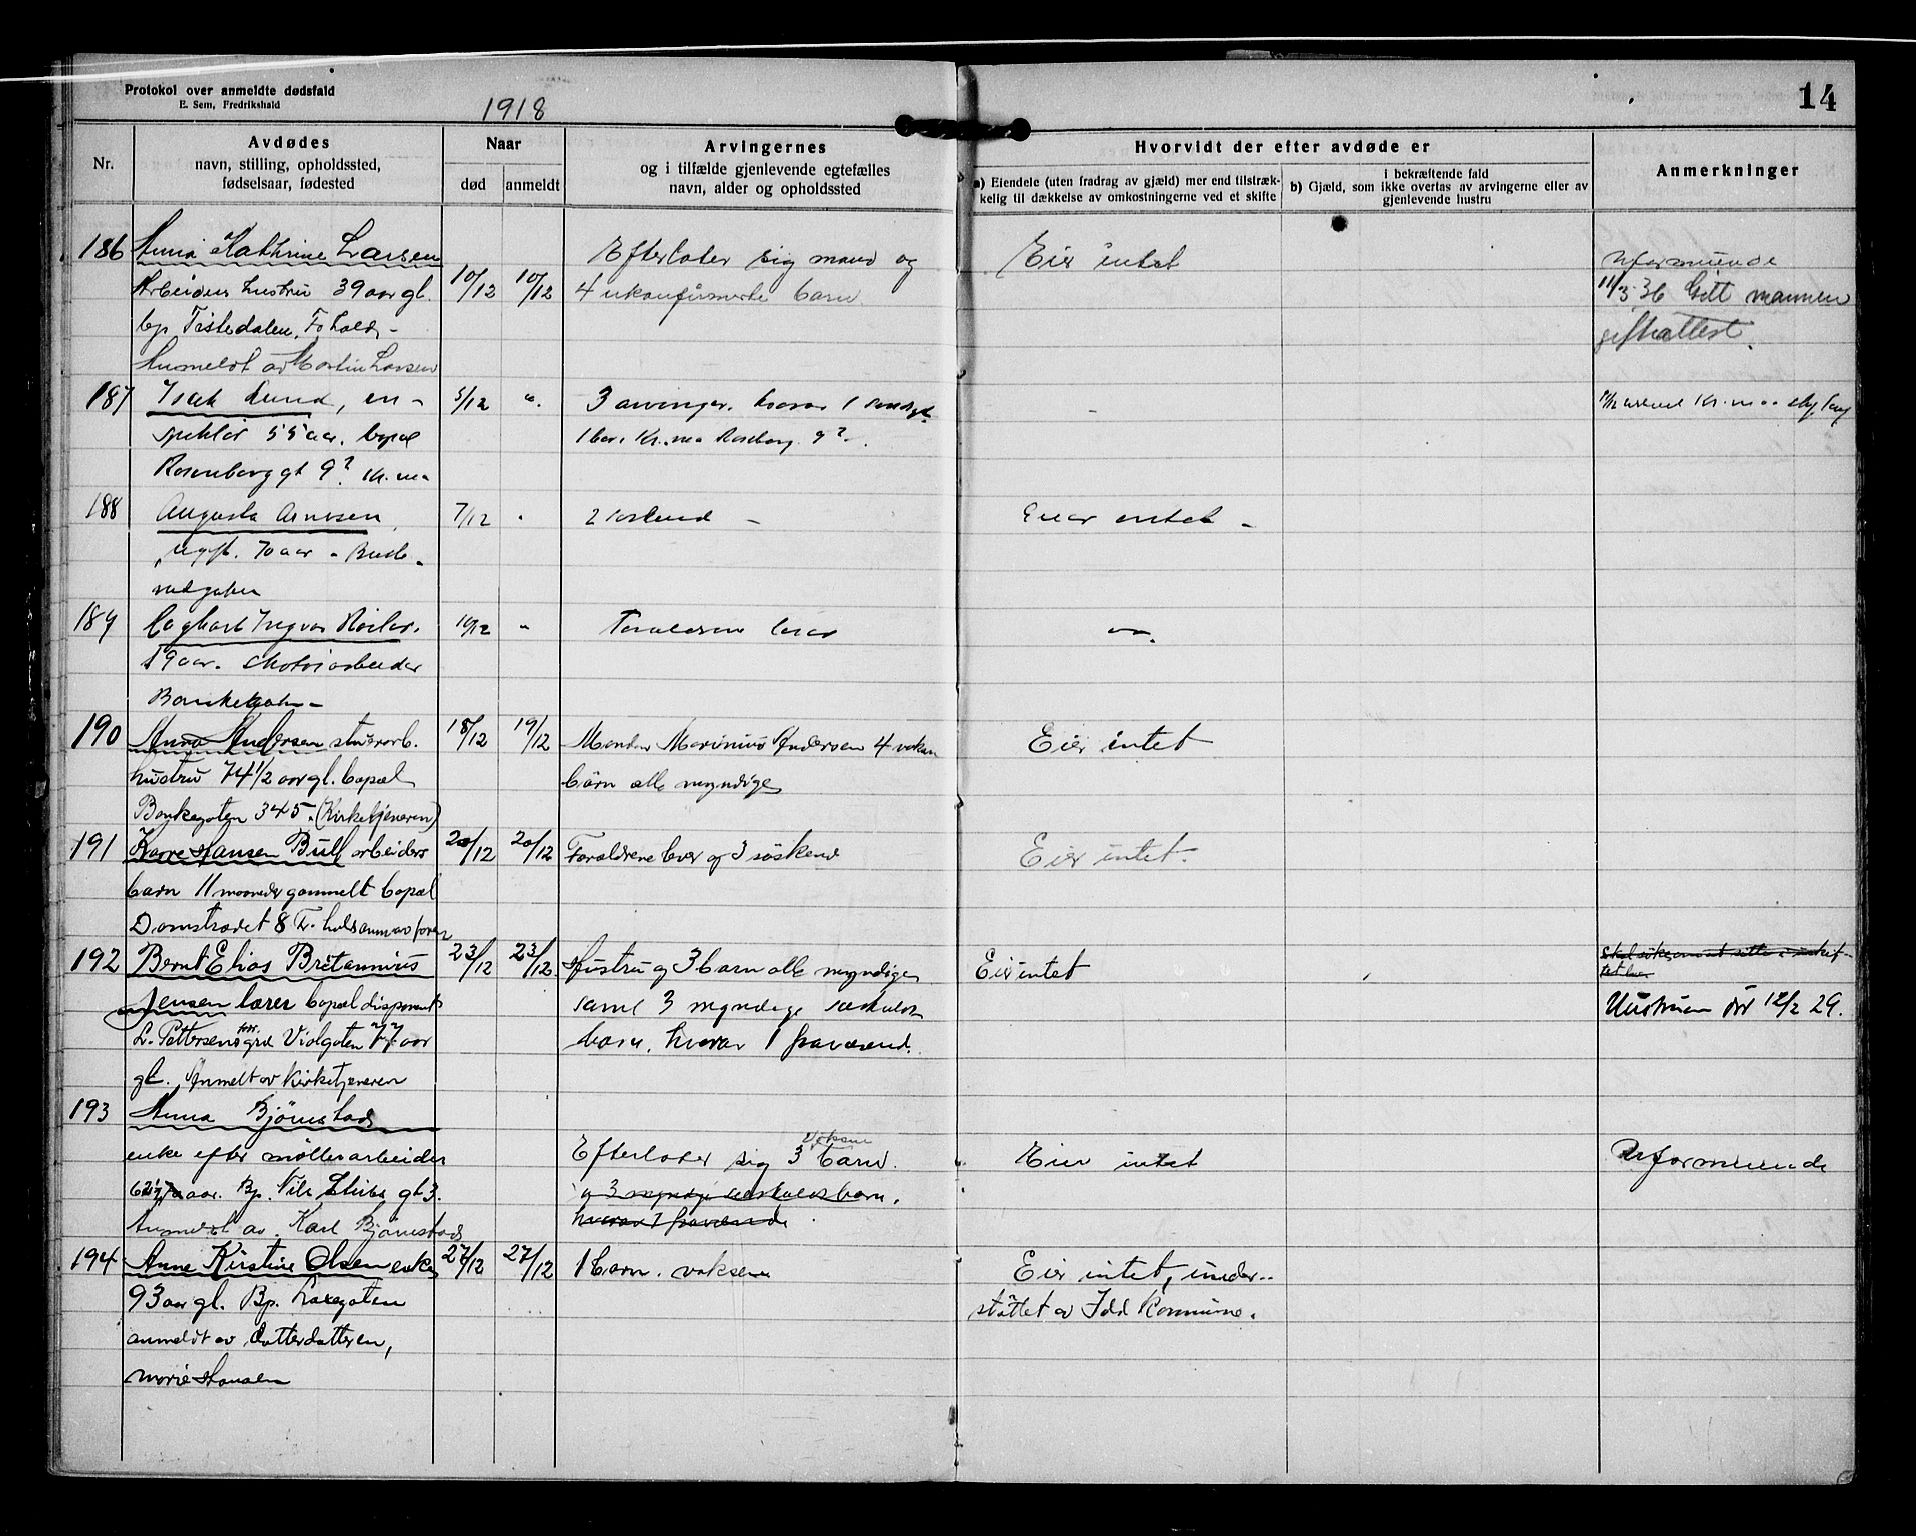 Protokol over anmeldte dødsfald
E. Sem, Fredrikshald
1918
14
Nr.
Avdødes
navn, stilling, opholdssted,
fødselsaar, fødested
Naar
død
anmeldt
Arvingernes
og i tilfælde gjenlevende egtefælles
navn, alder og opholdssted
Hvorvidt der efter avdøde er
a) Eiendele (uten fradrag av gjæld) mer end tilstræk-
kelig til dækkelse av omkostningerne ved et skifte
i bekræftende fald
b) Gjæld, som ikke overtas av arvingerne eller av
gjenlevende hustru
Anmerkninger
186 Anna Kathrine Larsen
Arbeiders hustru 39 aar gl.
bp. Tistedalen, Fr.hald -
Anmeldt av Martin Larsen
10/12 10/12
Efterlater sig mand og
4 ukonfirmerte barn
Eier intet
Uformuende
11/3 36 Gitt mannen
187 Isak Lund, in-
spektør 55 aar, bopæl
Rosenborg gt 9? Kr.ma
5/12 "
3 arvinger, hvorav 1
Kr.ma Rosenborg 9?
188 Augusta Arnesen,
ugift. 70 aar
7/12 "
2 søskend -
Eier intet -
189 Ingvar
19 aar.
Bankegaten -
10/12 "
Foreldrene lever
190 Anna Andersen stuerarb.
hustru 74 1/2 aar gl. bopæl
Bankegaten 345. (Kirketjeneren)
18/12 19/12
Manden Marinius Andersen 4 voksne
børn alle myndige
Eier intet
191 Kaare Hansen Bull arbeiders
barn 11 maaneder gammelt bopæl
Damstrædet 8 Fr.hald anm av faren
20/12 20/12
Forældrene lever og 3 søskend
Eier intet.
192 Bernt Elias Britannius
Jensen lærer bopæl disponent
L. Pettersens grd Violgaten 77 aar
gl. Anmelt av Kirketjeneren
23/12 23/12
Hustru og 3 barn alle myndige
samt 3 myndige særkulds
barn, hvorav 1 fraværend.
Eier intet
Hustruen død 12/2 29.
193 Anna Bjørnstad
enke efter møllerarbeider
aar. Bp. Nils Stubs gt 3.
Anmeldt av Karl Bjørnstad
Efterlater sig 3 voksne barn.
og 3 myndige særkuldsbarn,
hvorav 1 fraværende.
Eier intet
Uformuende
194 Anne Kirstine Olsen enke
93 aar gl. Bp. Laxegaten
anmeldt av datterdatteren,
Marie Hansen
27/12 27/12
1 barn. voksen
Eier intet, under-
støttet av Idd Kommune.